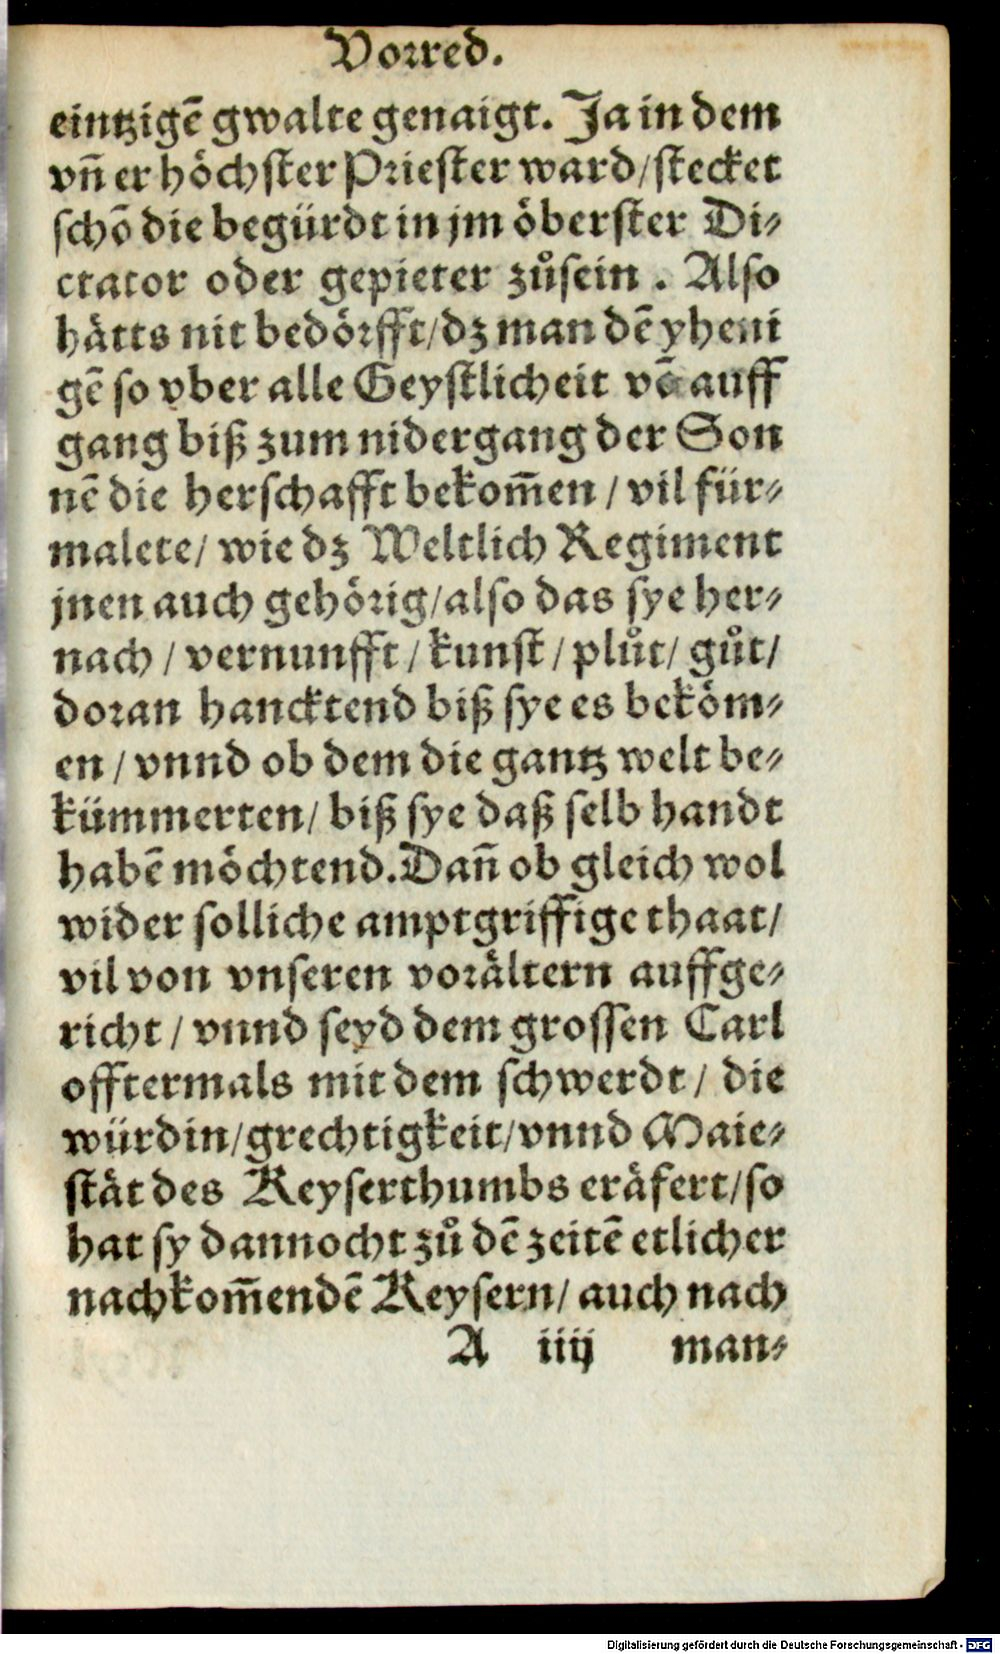 Vorred.
eintzigē gwalte genaigt. Ja in dem
vn̄ er höchster Priester ward/stecket
schō die begürdt in jm öberster Di-
ctator oder gepieter zůsein. Also
hätts nit bedörfft/dz man dē yheni
gē so vber alle Geystlicheit vō auff
gang biß zum nidergang der Son
nē die herschafft bekom̄en / vil für-
malete/ wie dz Weltlich Regiment
jnen auch gehörig/also das sye her-
nach / vernunfft / kunst / plůt/ gůt/
doran hancktend biß sye es beköm-
en / vnnd ob dem die gantz welt be-
kümmerten/ biß sye daß selb handt
habē möchtend. Dan̄ ob gleich wol
wider solliche amptgriffige thaat/
vil von vnseren vorältern auffge-
richt / vnnd seyd dem grossen Carl
offtermals mit dem schwerdt/ die
würdin/grechtigkeit/vnnd Maie-
stät des Keyserthumbs eräfert/so
hat sy dannocht zů dē zeitē etlicher
nachkom̄endē Keysern/ auch nach
A iiij man-
Digitalisierung gefördert durch die Deutsche Forschungsgemeinschaft - DFG